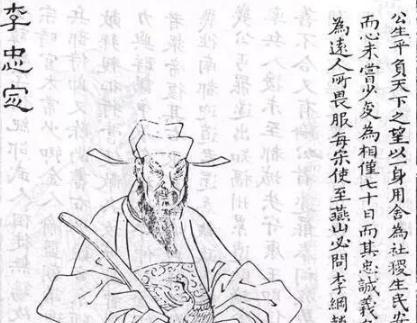 公生平負天下之望以身用舍為社稷生民安
而心未嘗少變為相僅七十日而其忠誠義
為遠人所畏服每宋使至燕山必問李綱趙
李忠定